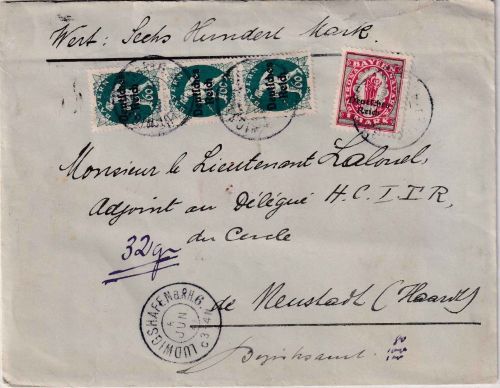 Wert: Sechs Hundert Mark.
Deutsches Reich
Deutsches Reich
Deutsches Reich
BAYERN
Deutsches Reich
1 MARK 1
Monsieur le Lieutenant Lalouel,
Adjoint au Délégué H.C.I.T.R,
du Cercle
32 gr
de Neustadt (Haardt)
LUDWIGSHAFEN a.RH. 6.
JUN
Bezirksamt